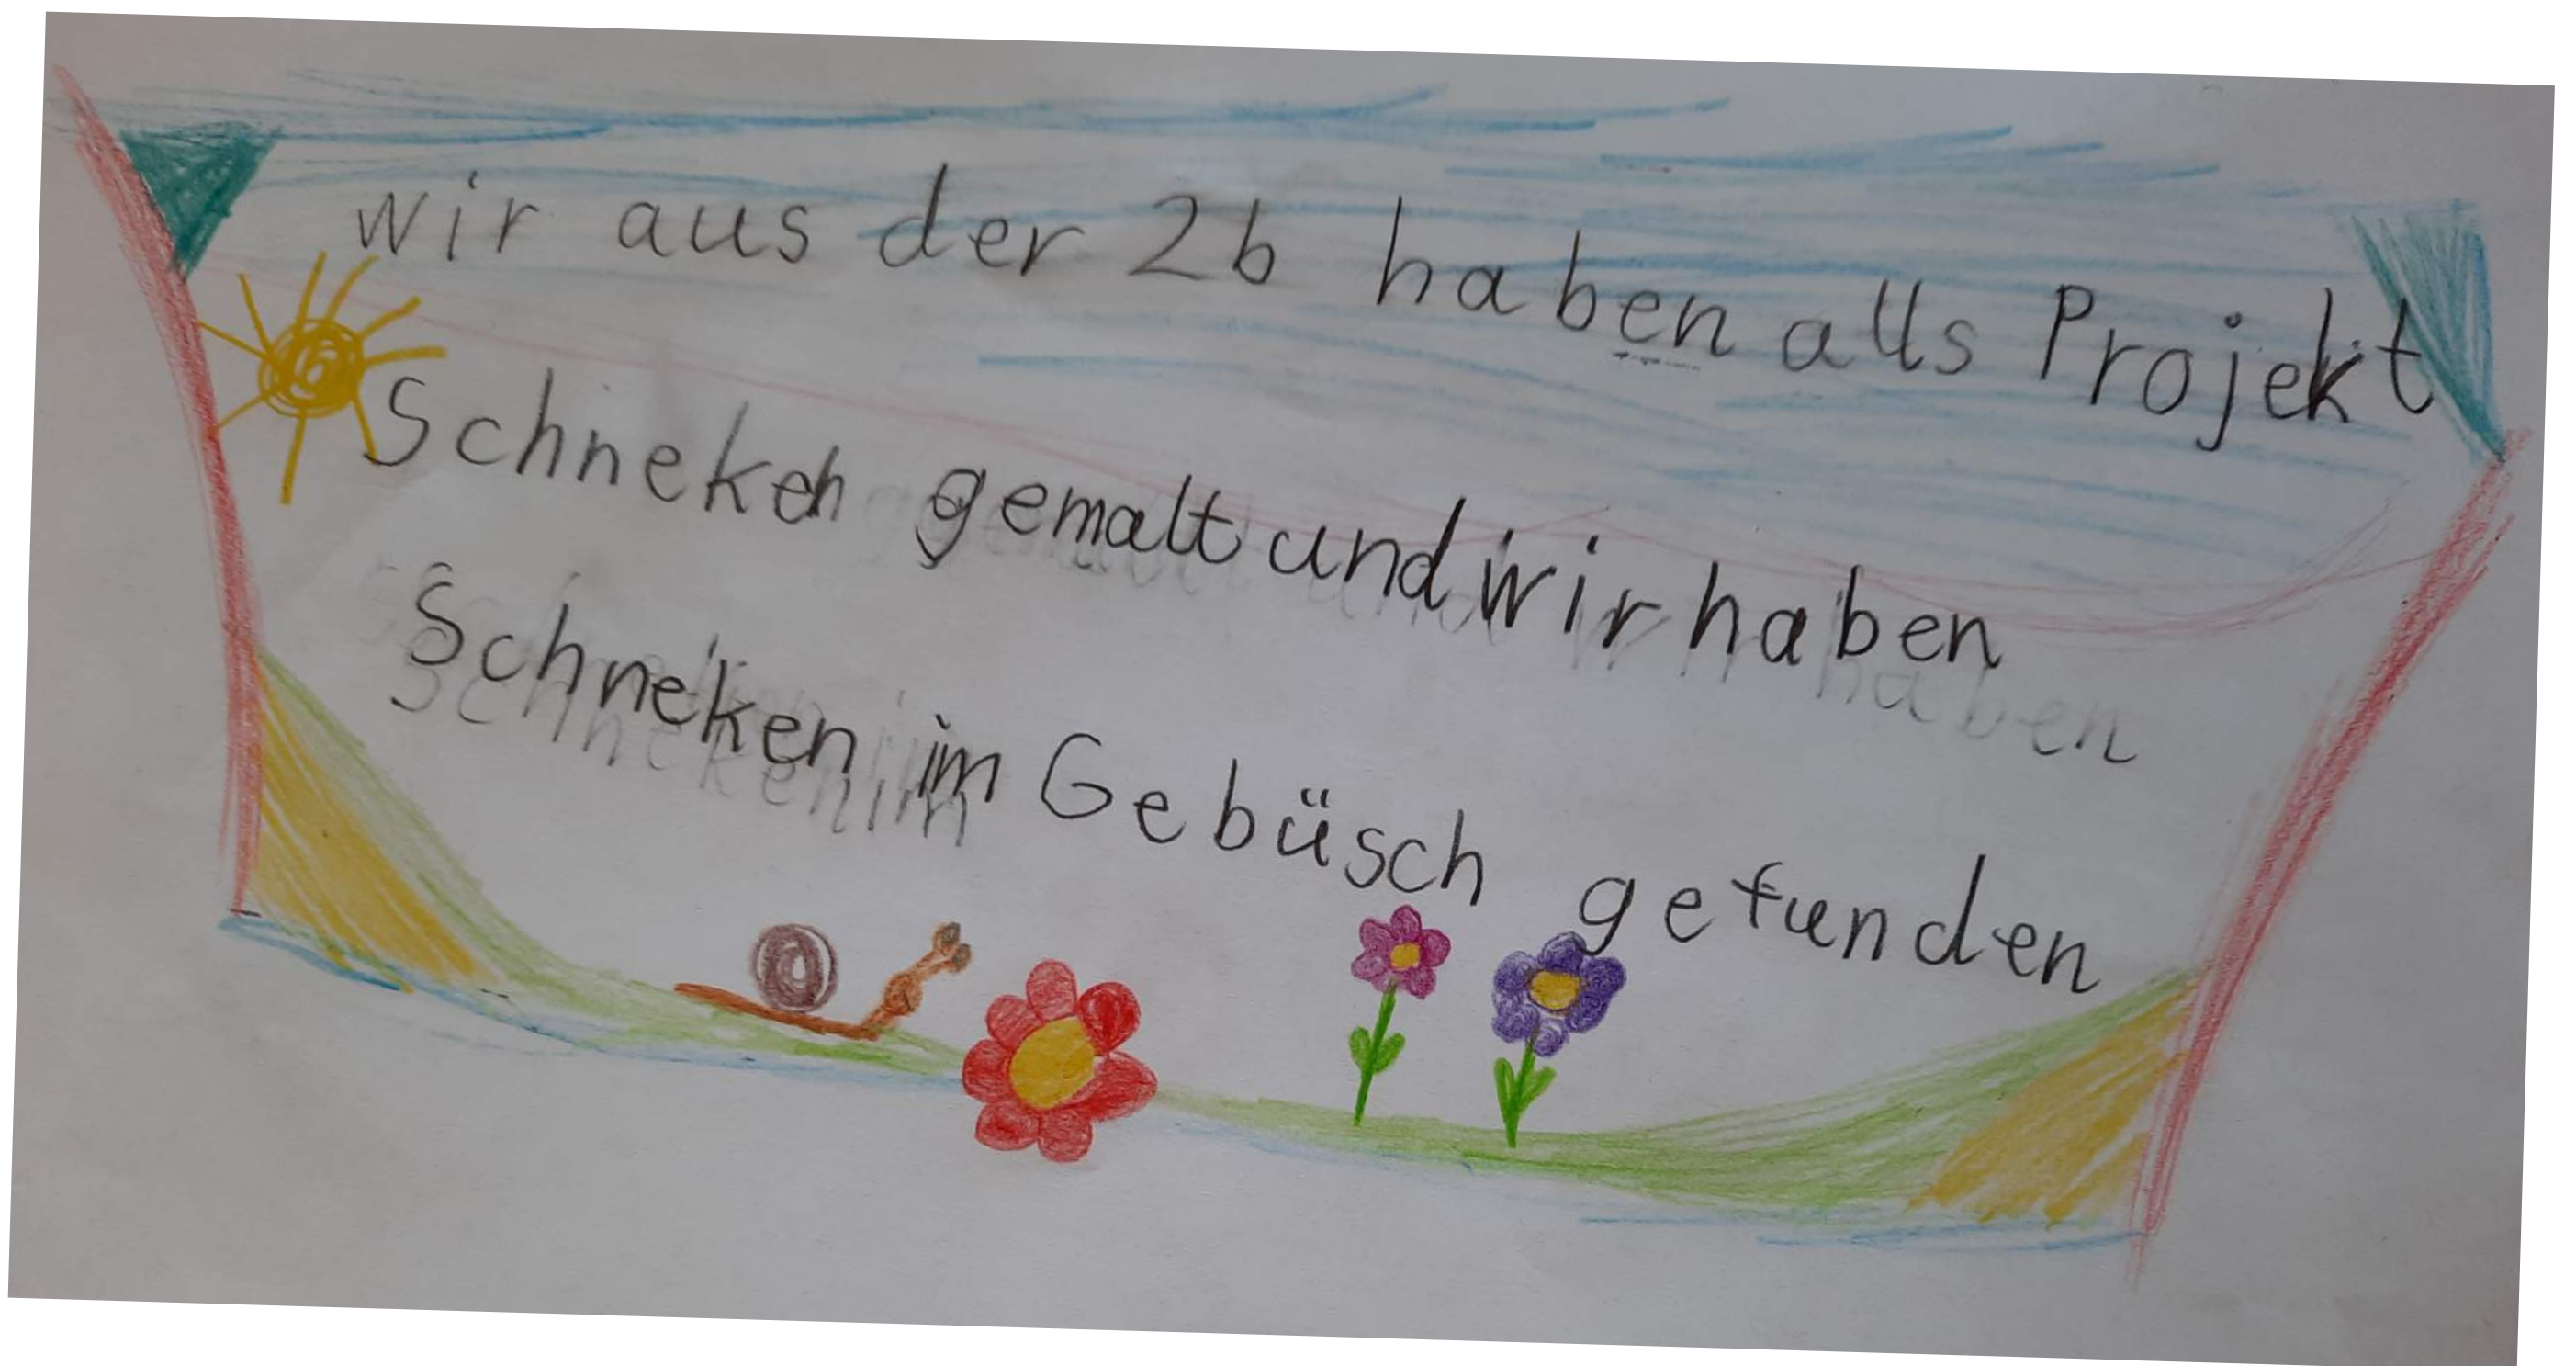 wir aus der 2b haben alls Projekt
Schneken gemalt und wir haben
Schneken im Gebüsch gefunden